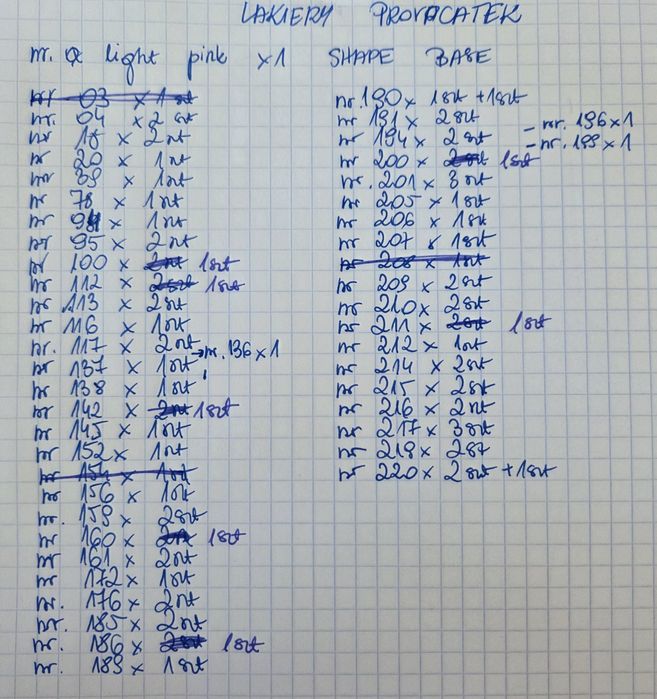 LAKIERY PROVOCATER
nr. light pink x1 SHAPE BASE
nr 03 x 1 szt
nr. 04 x 2 szt
nr 18 x 2 szt
nr 20 x 1 szt
nr 39 x 1szt
nr 78 x 1szt
nr x 1szt
nr 95 x 2szt
nr 100 x 2szt 1szt
nr 112 x 2szt 1szt
nr 113 x 2szt
nr 116 x 1szt
nr. 117 x 2szt
→ nr. 136 x 1
nr 137 x 1szt
nr 138 x 1szt
nr 142 x 2szt 1szt
nr 145 x 1szt
nr 152 x 1szt
nr 154 x 1szt
nr 156 x 1szt
nr. 159 x 2szt
nr 160 x 2szt 1szt
nr 161 x 2szt
nr 172 x 1szt
nr. 176 x 2szt
nr. 185 x 2szt
nr. 186 x 2szt 1szt
nr. 189 x 1szt
nr. 190 x 1szt +1szt
nr 191 x 2szt
nr 194 x 2szt
- nr. 196 x 1
- nr. 199 x 1
nr 200 x 2szt 1szt
nr. 201 x 3szt
nr 205 x 1szt
nr 206 x 1szt
nr 207 x 1szt
nr 208 x 1szt
nr 209 x 2szt
nr 210 x 2szt
nr 211 x 2szt 1szt
nr 212 x 1szt
nr 214 x 2szt
nr 215 x 2szt
nr 216 x 2szt
nr 217 x 3szt
nr 219 x 2szt
nr 220 x 2szt +1szt